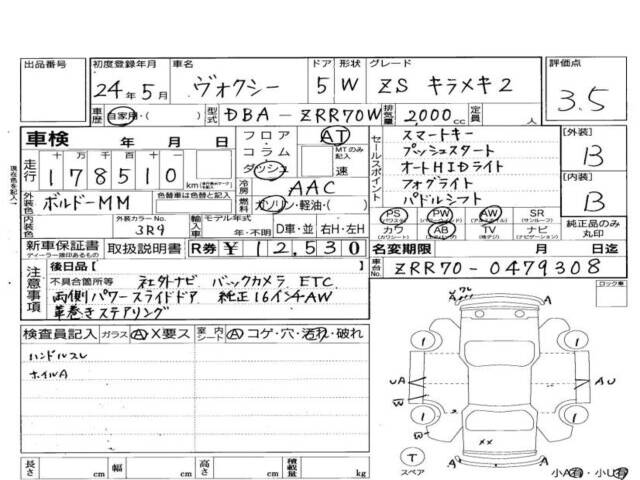 出品番号
初度登録年月
24年5月
車名
ヴォクシー
ドア
5
形状
W
グレード
ZS キラメキ2
評価点
3.5
車歴
自家用・( )
型式
DBA-ZRR70W
排気量
2,000cc
定員
人
車検 年 月 日
フロア
コラム
ダッシュ
AT
MTのみ記入
速
セールスポイント
スマートキー
プッシュスタート
オートHIDライト
フォグライト
パドルシフト
[外装]
B
[内装]
B
現在色を記入
走行
十万千百十
178510km
冷房
AAC
燃料
ガソリン・軽油・( )
外装色
内装色
ボルドーMM
色替車は色替と記入
外装カラーNo.
3R9
輸入車
モデル年式
年・不明
D車・並 右H・左H
PS
(パワーステアリング)
PW
(パワーウインドウ)
AW
(アルミホイル)
SR
(サンルーフ)
カワ
(カワシート)
AB
(エアバッグ)
TV
(地デジ)
ナビ
(ナビゲーション)
純正品のみ丸印
新車保証書
ディーラー捺印あるもの
取扱説明書
R券 ¥12,530
名変期限 月 日迄
注意事項
後日品( )
不具合箇所等
社外ナビ バックカメラ ETC
両側パワースライドドア 純正16インチAW
革巻きステアリング
車台No.
ZRR70-0479308
ロック車
検査員記入
ガラス A X要ス
室内シート A コゲ・穴・汚れ・破れ
ハンドルスレ
ホイルA
A
A
UA
W
AU
W
1
1
1
1
XX
T
スペア
A
A
長さ cm 幅 cm 高さ cm 積載量 kg
小A有・小U有